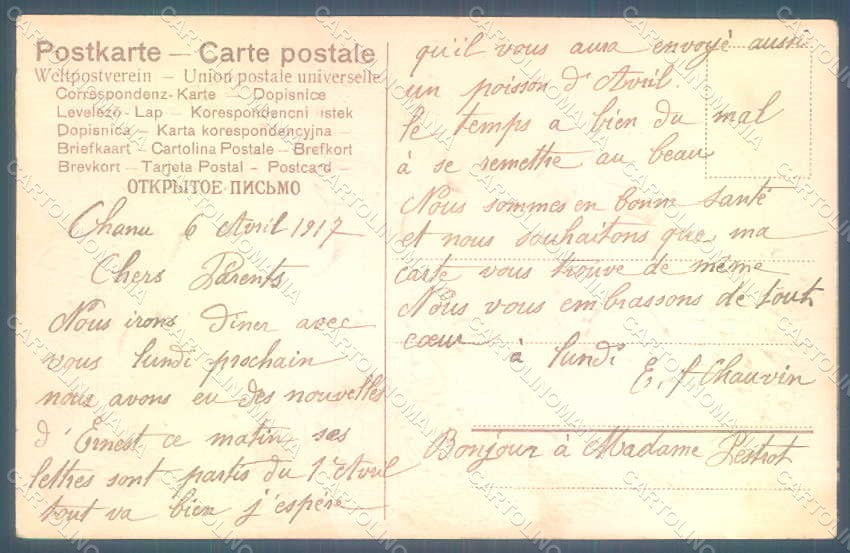 Postkarte — Carte postale
Weltpostverein — Union postale universelle
Correspondenz-Karte — Dopisnice
Levelező-Lap — Korespondencni listek
Dopisnica — Karta korespondencyjna —
Briefkaart — Cartolina Postale — Brefkort
Brevkort — Tarjeta Postal — Postcard —
ОТКРЫТОЕ ПИСЬМО
Chanu 6 Avril 1917
Chers Parents
Nous irons diner avec
vous lundi prochain
nous avons eu des nouvelles
d'Ernest ce matin ses
lettres sont partis du 1er Avril
tout va bien j'espère
qu'il vous aura envoyé aussi
un poisson d'Avril.
le temps a bien du mal
à se remettre au beau
Nous sommes en bonne santé
et nous souhaitons que ma
carte vous trouve de même
Nous vous embrassons de tout
cœur à lundi
E. f Chauvin
Bonjour à Madame Lestrot
CARTOLINOMANIA